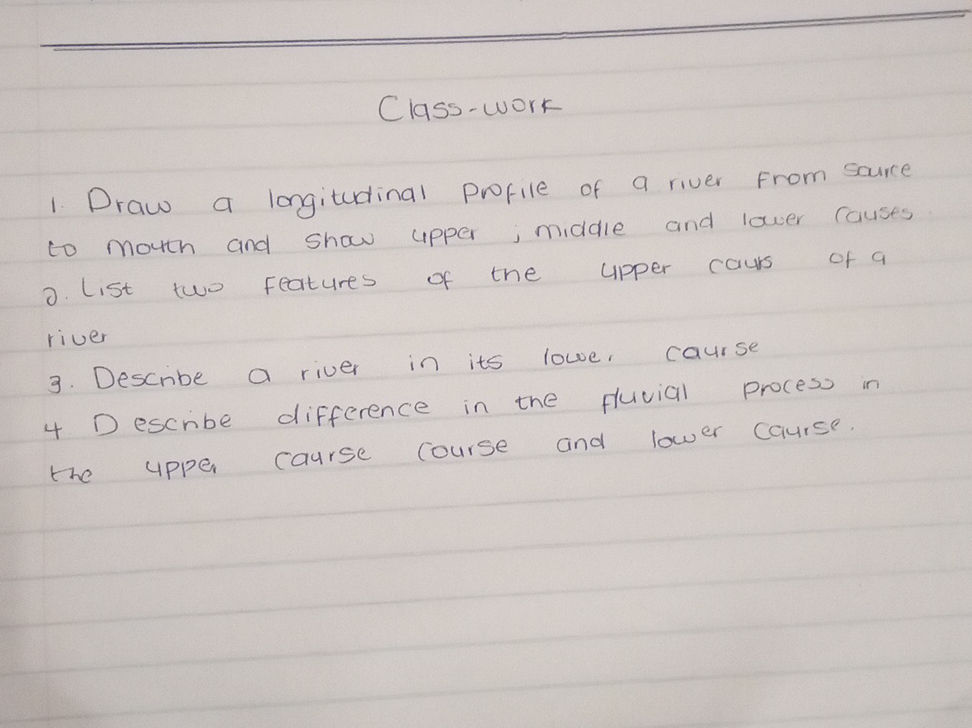 Class-work
1. Draw a longitudinal profile of a river from source
to mouth and show upper, middle and lower causes
2. List two features of the upper caurs of a
river
3. Describe a river in its lower caurse
4 Describe difference in the fluvial process in
the upper caurse course and lower caurse.